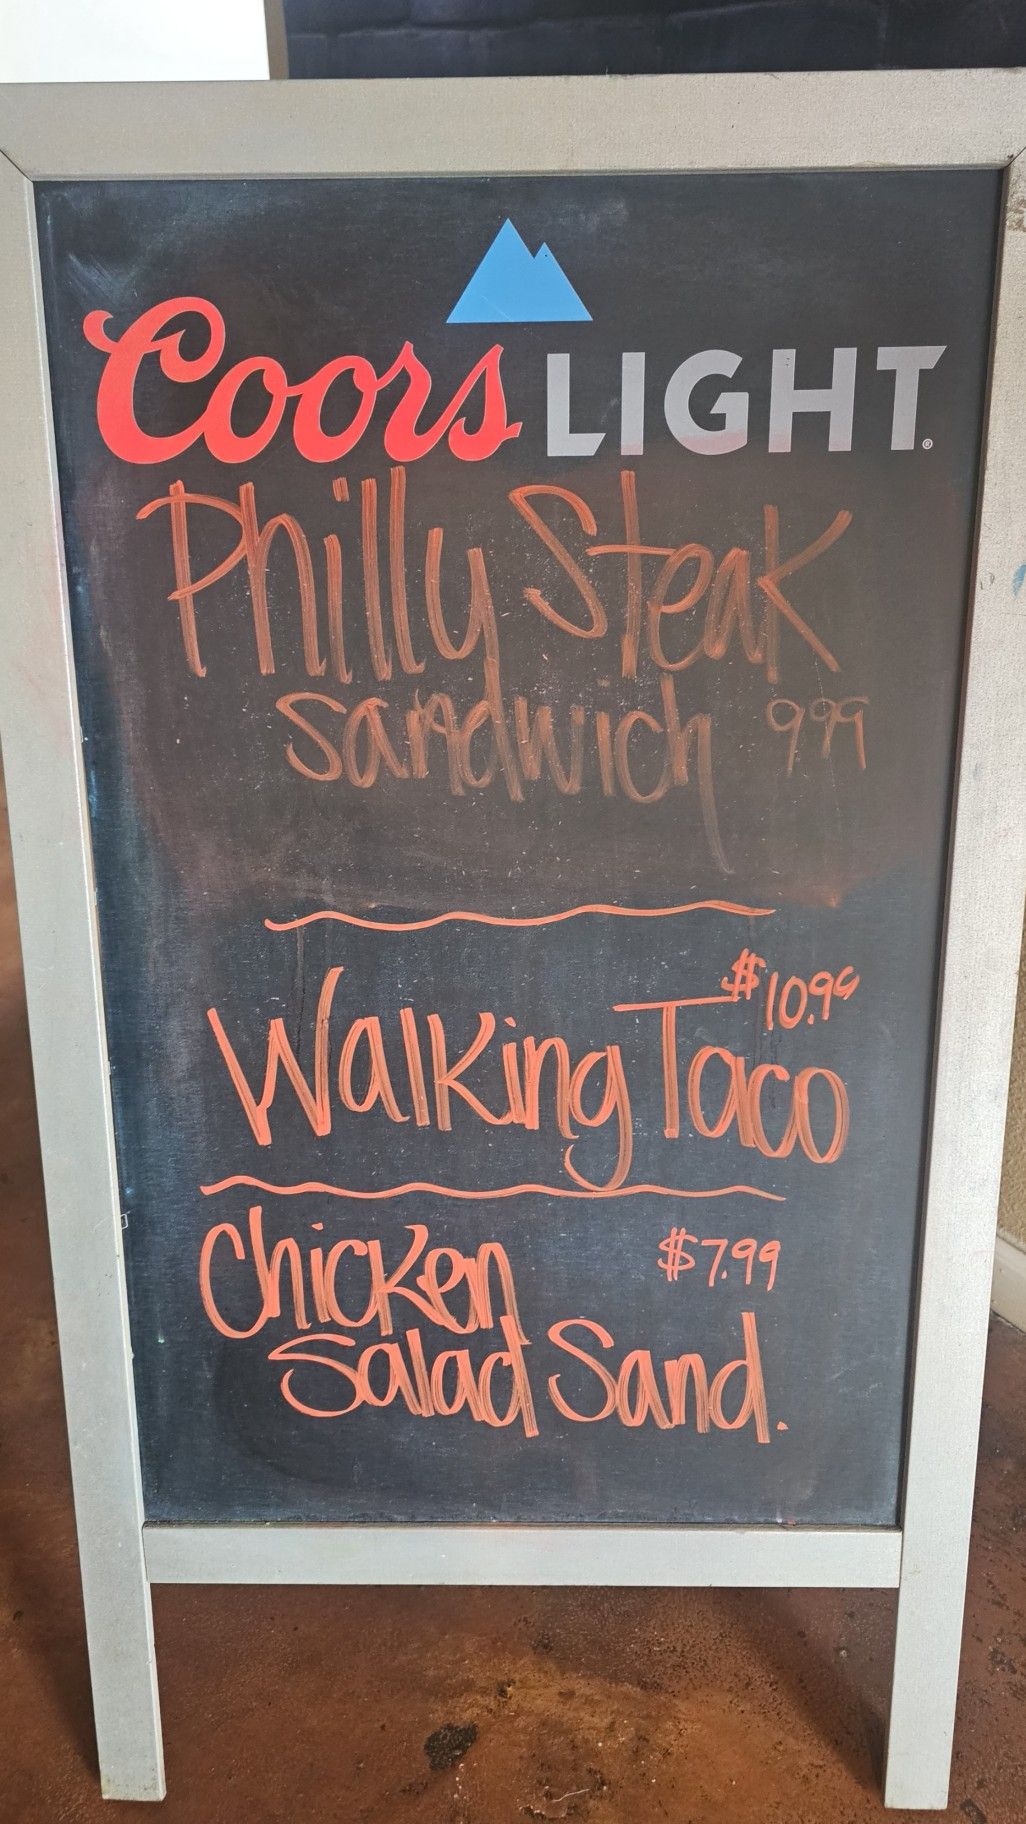 Coors LIGHT®
Philly Steak
Sandwich 999
$10.99
Walking Taco
Chicken $7.99
Salad Sand.